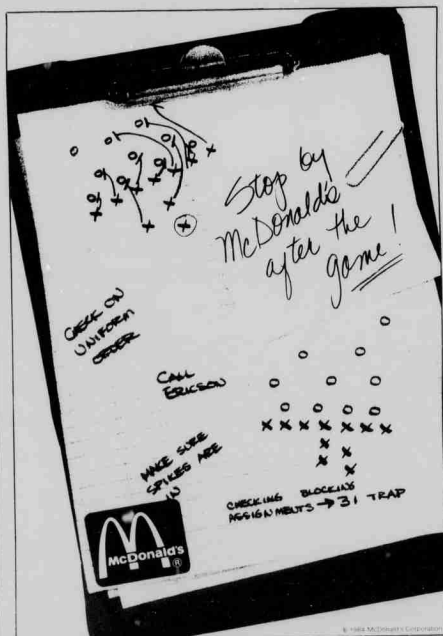 Stop by
McDonald's
after the
game!
CHECK ON
UNIFORM
ORDER
CALL
ERICSON
MAKE SURE
SPIKES ARE
IN
CHECKING BLOCKING
ASSIGNMENTS → 31 TRAP
McDonald's
®
© 1984 McDonald's Corporation